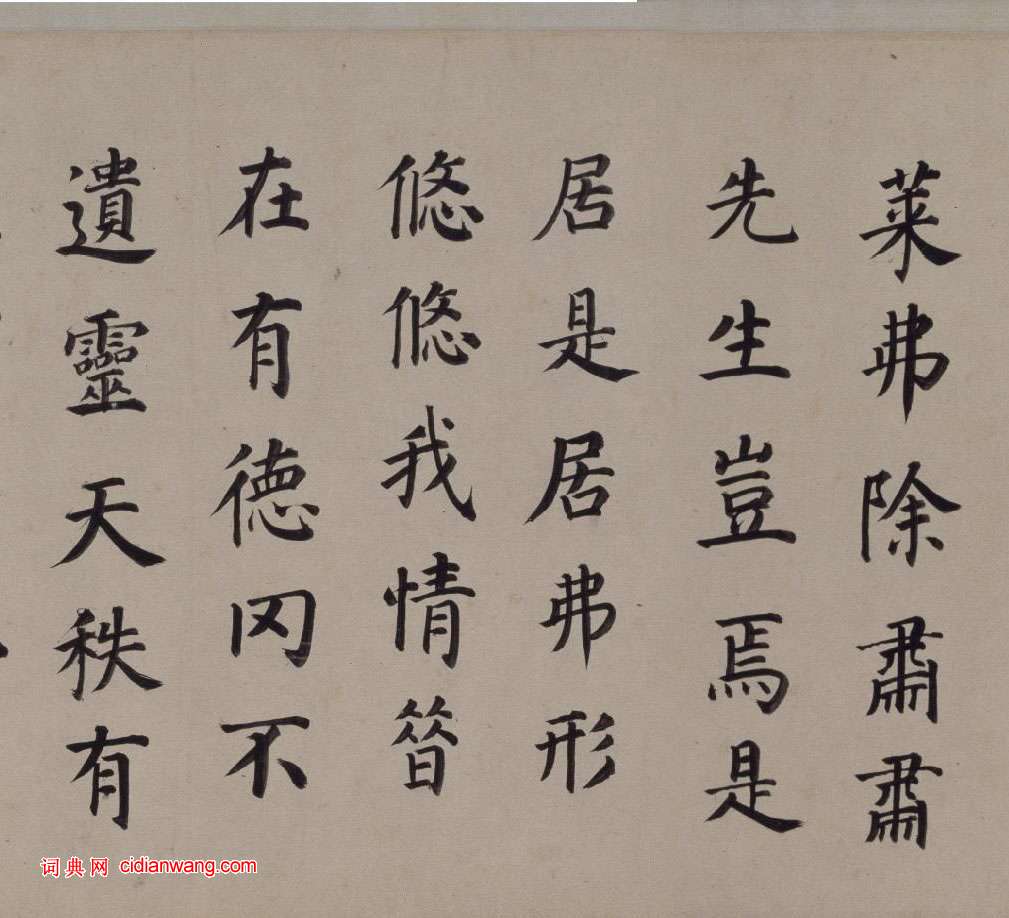 菜弗除肅肅
先生豈焉是
居是居弗形
悠悠我情昝
在有德罔不
遺靈天秩有
词典网 cidianwang.com